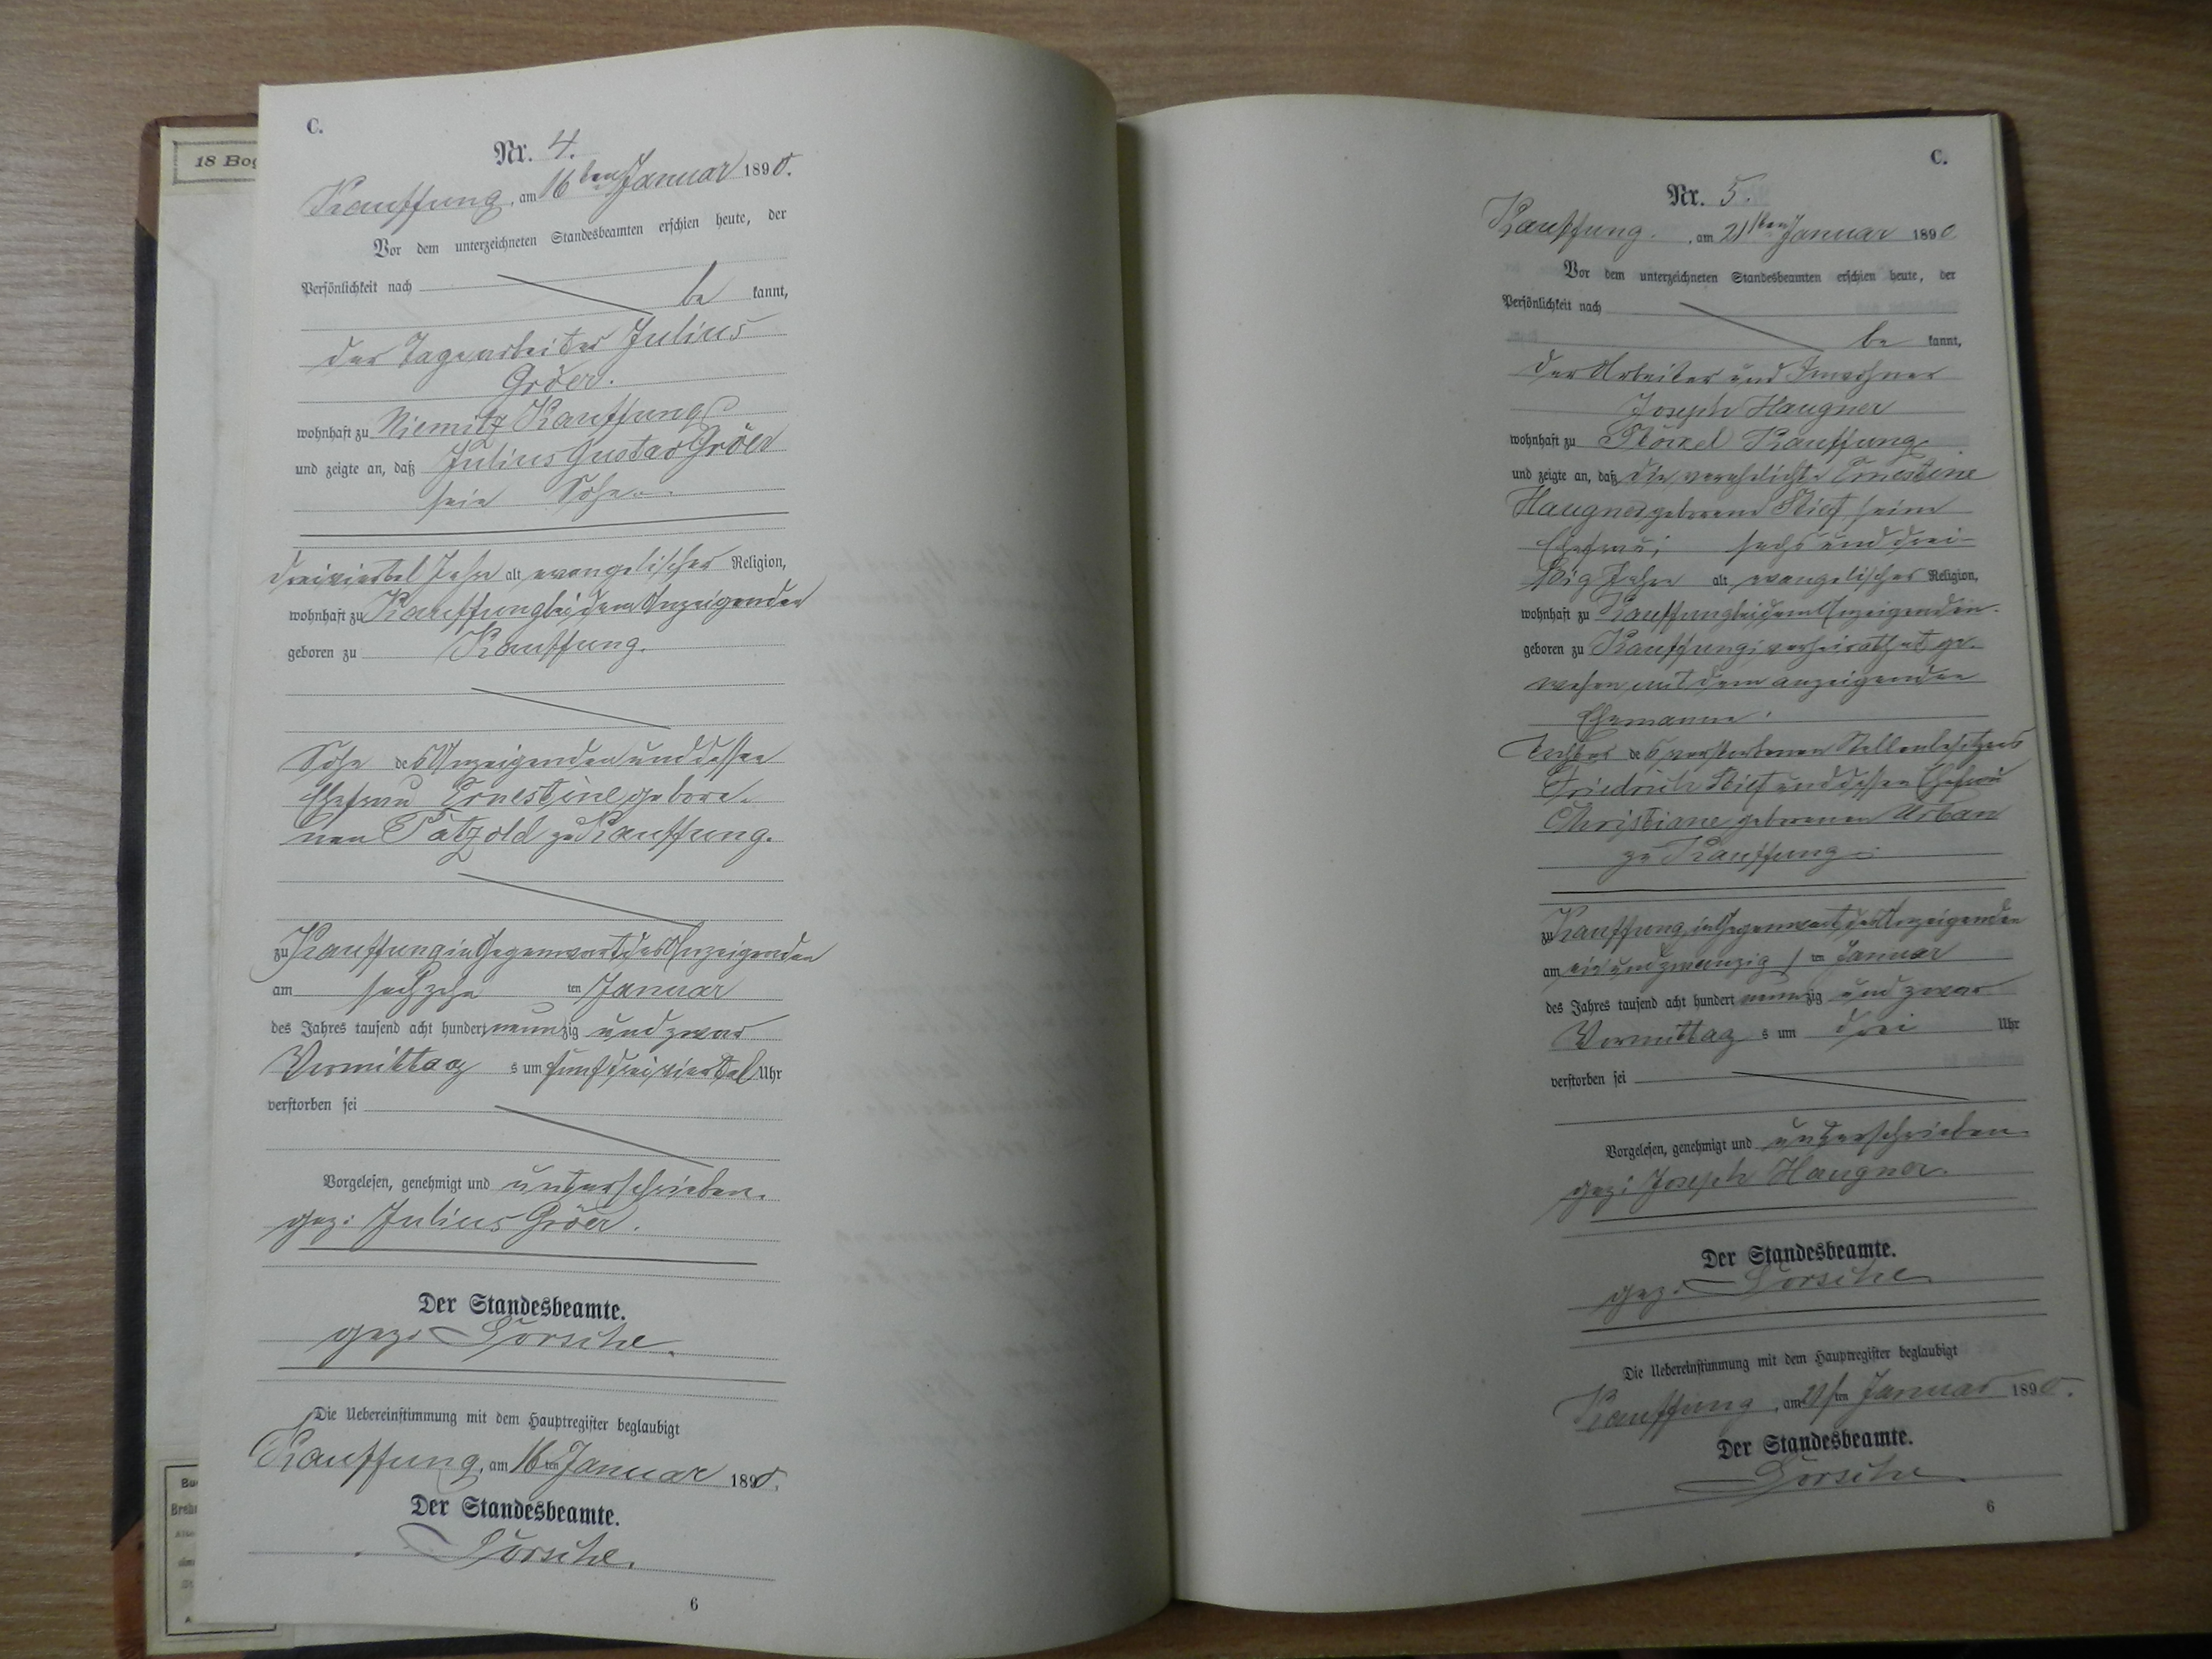 18 Bog
C.
Nr. 4.
Kauffung, am 16ten Januar 1890.
Vor dem unterzeichneten Standesbeamten erschien heute, der
Persönlichkeit nach
be kannt,
der Tagearbeiter Julius
Gröer.
wohnhaft zu Niemitz Kauffung
und zeigte an, daß Julius Gustav Gröer
sein Sohn
dreiviertel Jahr alt, evangelischer Religion,
wohnhaft zu Kauffung bei dem Anzeigenden
geboren zu Kauffung.
Sohn des Anzeigenden und dessen
Ehefrau Ernestine gebore-
nen Pätzold zu Kauffung.
zu Kauffung in Gegenwart des Anzeigenden
am sechzehn ten Januar
des Jahres tausend acht hundert neunzig und zwar
Vormittag s um fünf dreiviertel Uhr
verstorben sei
Vorgelesen, genehmigt und unterschrieben.
gez: Julius Gröer.
Der Standesbeamte.
gez:
Die Uebereinstimmung mit dem Hauptregister beglaubigt
Kauffung, am 16ten Januar 1890.
Der Standesbeamte.
6
C.
Nr. 5.
Kauffung. , am 21ten Januar 1890
Vor dem unterzeichneten Standesbeamten erschien heute, der
Persönlichkeit nach
be kannt,
der Arbeiter und Inwohner
Joseph Haugner
wohnhaft zu Stöckel Kauffung
und zeigte an, daß die verehelichte Ernestine
Haugner geborene Stief seine
Ehefrau; sechs und drei-
ßig Jahre alt, evangelischer Religion,
wohnhaft zu Kauffung bei dem Anzeigenden.
geboren zu Kauffung; verheirathet ge-
wesen mit dem anzeigenden
Ehemanne.
Tochter des verstorbenen Stellenbesitzers
Friedrich Stief und dessen Ehefrau
Christiane geborenen Urban
zu Kauffung
zu Kauffung, in Gegenwart des Anzeigenden
am ein und zwanzig ten Januar
des Jahres tausend acht hundert neunzig und zwar
Vormittag s um drei Uhr
verstorben sei
Vorgelesen, genehmigt und unterschrieben
gez: Joseph Haugner.
Der Standesbeamte.
gez:
Die Uebereinstimmung mit dem Hauptregister beglaubigt
Kauffung, am 21ten Januar 1890.
Der Standesbeamte.
6